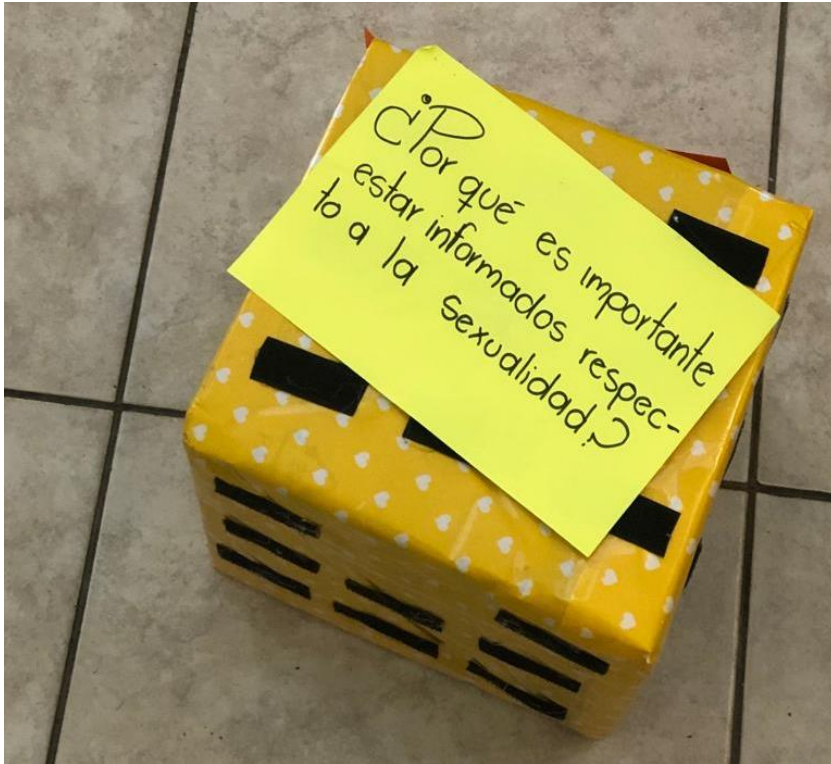 ¿Por qué es importante
estar informados respec-
to a la sexualidad?